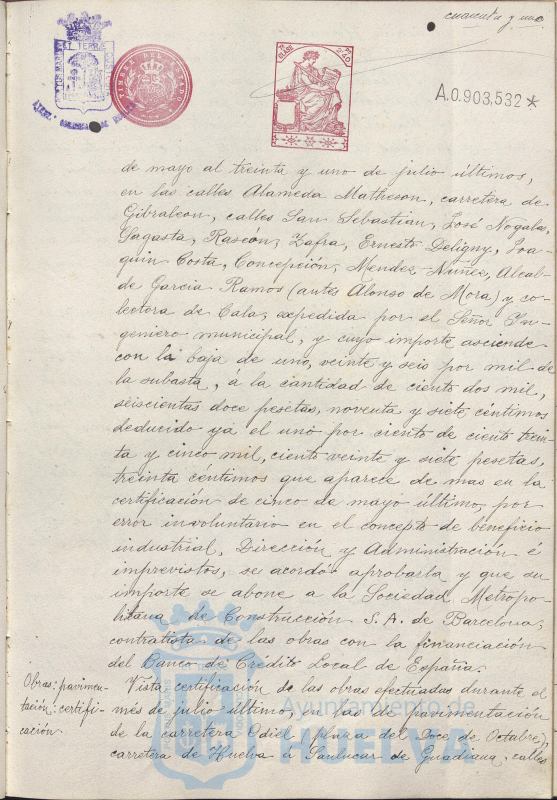 cuarenta y uno
TIMBRE DEL ESTADO
A.0.903,532 *
de mayo al treinta y uno de julio últimos,
en las calles Alameda Matheson, carretera de
Gibraleon, calles San Sebastian, José Nogales,
Sagasta, Rascón, Zafra, Ernesto Deligny, Joa-
quin Costa, Concepción, Mendez Nuñez, Alcal-
de Garcia Ramos (antes Alonso de Mora) y co-
lectora de Cala, expedida por el Señor In-
geniero municipal, y cuyo importe asciende
con la baja de uno, veinte y seis por mil de
la subasta, á la cantidad de ciento dos mil,
seiscientas doce pesetas, noventa y siete céntimos
deducido ya el uno por ciento de ciento trein-
ta y cinco mil, ciento veinte y siete pesetas,
treinta céntimos que aparece de mas en la
certificación de cinco de mayo último, por
error involuntario en el concepto de beneficio
industrial, Dirección y Administración é
imprevistos, se acordó aprobarla y que su
importe se abone a la Sociedad Metropo-
litana de Construcción S.A. de Barcelona,
contratista de las obras con la financiación
del Banco de Crédito Local de España.
Obras: pavimen-
tación: certifi-
cación.
Vista certificación de las obras efectuadas durante el
mes de julio último, en las de pavimentación
de la carretera Odiel (plaza del Doce de Octubre),
carretera de Huelva á Sanlucar de Guadiana, calles
Ayuntamiento de
HUELVA